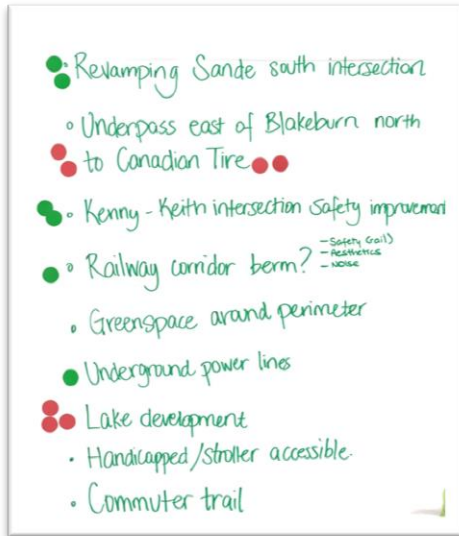 ◦ Revamping Sande south intersection
◦ Underpass east of Blakeburn north
to Canadian Tire
◦ Kenny - Keith intersection safety improvement
◦ Railway corridor berm? - Safety (rail)
- Aesthetics
- Noise
• Greenspace around perimeter
Underground power lines
Lake development
• Handicapped/Stroller accessible.
• Commuter trail